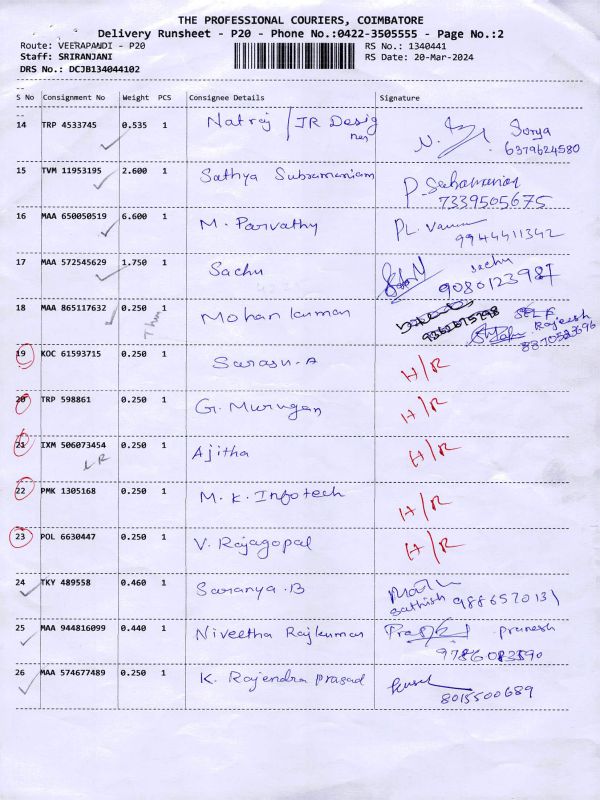 THE PROFESSIONAL COURIERS, COIMBATORE
Delivery Runsheet - P20 - Phone No.:0422-3505555 - Page No.:2
Route: VEERAPANDI - P20 RS No.: 1340441
Staff: SRIRANJANI RS Date: 20-Mar-2024
DRS No.: DCJB134044102
S No Consignment No Weight PCS Consignee Details Signature
14 TRP 4533745 0.535 1 Natraj / JR Desig Surya
ner 6379624580
15 TVM 11953195 2.600 1 Sathya Subramaniam P. Subramanian
7339505675
16 MAA 650050519 6.600 1 M. Parvathy PL.
9944411342
17 MAA 572545629 1.750 1 Sachu sachu
9080123987
18 MAA 865117632 0.250 1 Mohan kumman SELF
Rajeesh
19 KOC 61593715 0.250 1 Sarasu.A H/R
20 TRP 598861 0.250 1 G. Murugan H/R
21 IXM 506073454 0.250 1 Ajitha H/R
LR
22 PMK 1305168 0.250 1 M.K. Infotech H/R
23 POL 6630447 0.250 1 V. Rajagopal H/R
24 TKY 489558 0.460 1 Saranya.B
Sathish 9886570131
25 MAA 944816099 0.440 1 Niveetha Rajkumar Pranesh
26 MAA 574677489 0.250 1 K. Rajendra prasad
8015500689